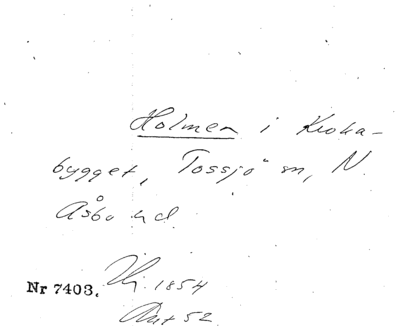 Holmen i Kroka-
bygget, Tossjö sn, N.
Åsbo hd.
Nr 7403. 1854
52